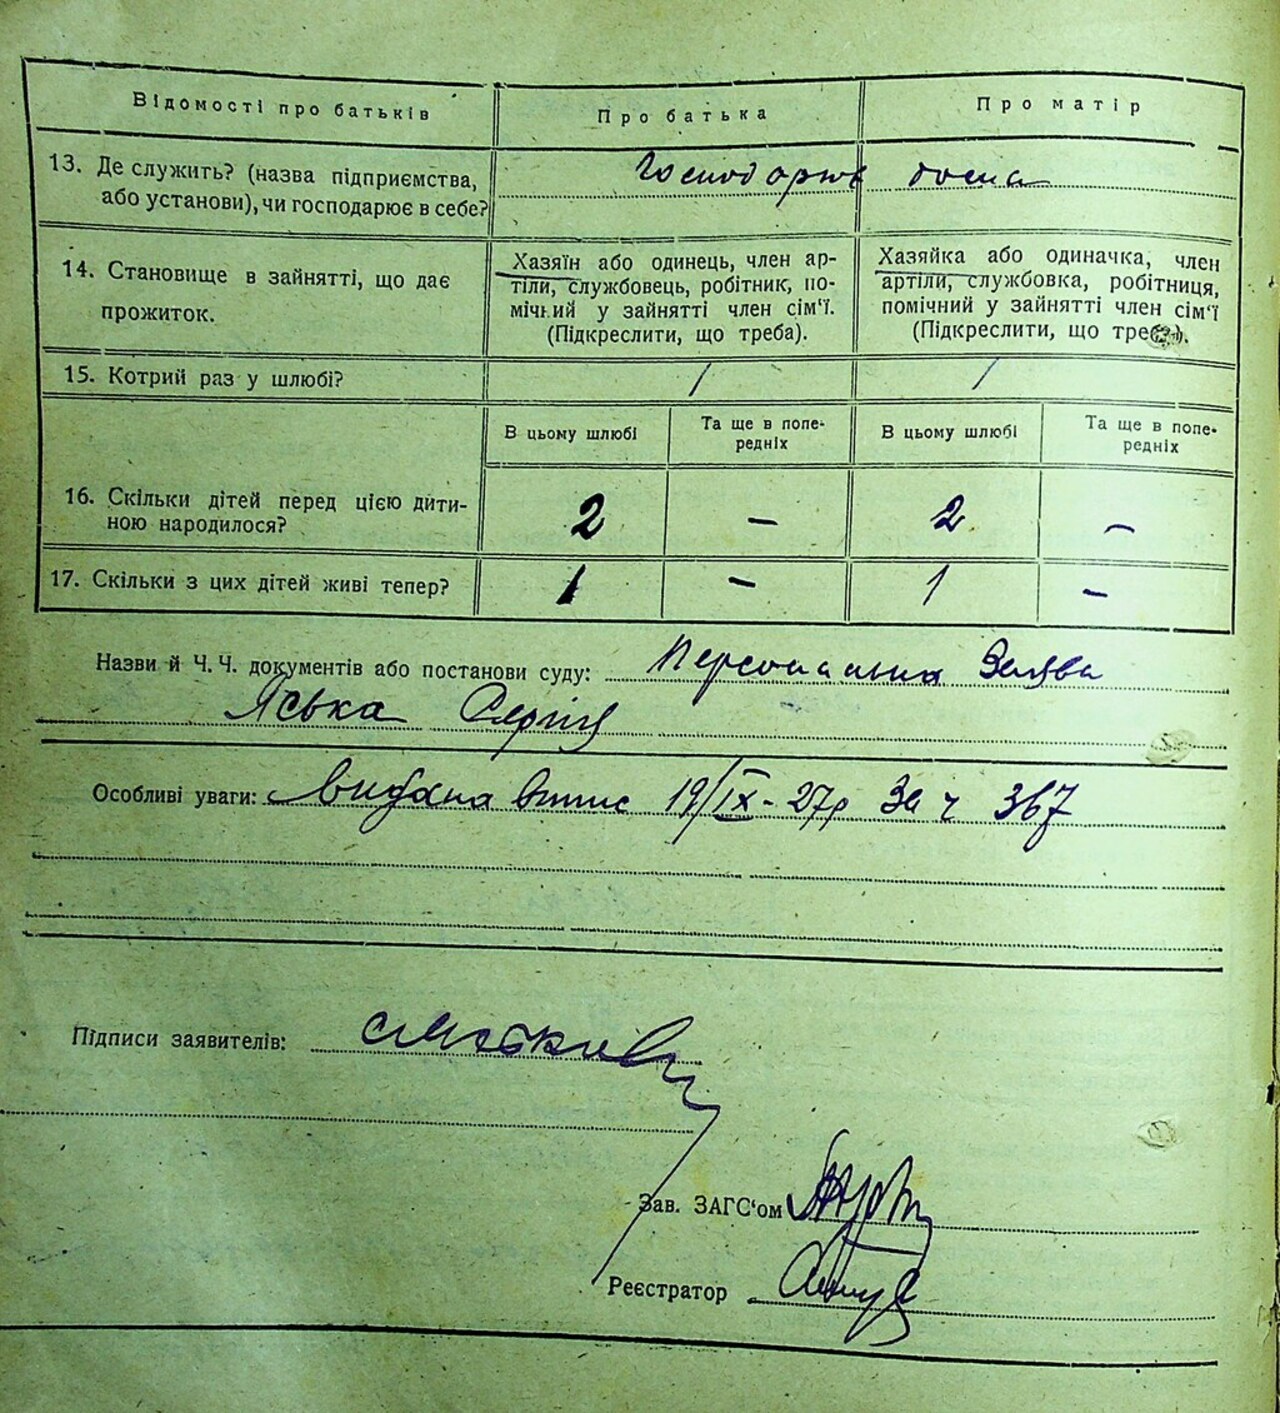 Відомості про батьків
Про батька
Про матір
13. Де служить? (назва підприємства,
або установи), чи господарює в себе?
Господарює дома
14. Становище в зайнятті, що дає
прожиток.
Хазяїн або одинець, член ар-
тіли, службовець, робітник, по-
мічний у зайнятті член сім'ї.
(Підкреслити, що треба).
Хазяйка або одиначка, член
артіли, службовка, робітниця,
помічний у зайнятті член сім'ї
(Підкреслити, що треба).
15. Котрий раз у шлюбі?
1
1
В цьому шлюбі
Та ще в попе-
редніх
В цьому шлюбі
Та ще в попе-
редніх
16. Скільки дітей перед цією дити-
ною народилося?
2
—
2
—
17. Скільки з цих дітей живі тепер?
1
—
1
—
Назви й Ч. Ч. документів або постанови суду: Персональна Заява
Яська Сергія
Особливі уваги: Видана Витпис 19/IX-27р За ч 367
Підписи заявителів:
Зав. ЗАГС'ом
Реєстратор